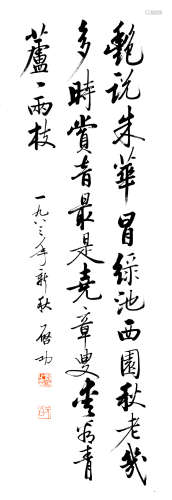 豔説朱華冒緑池西園秋老幾
多時賞音最是堯章叟愛青
蘆一兩枝
一九八三年新秋 啓功